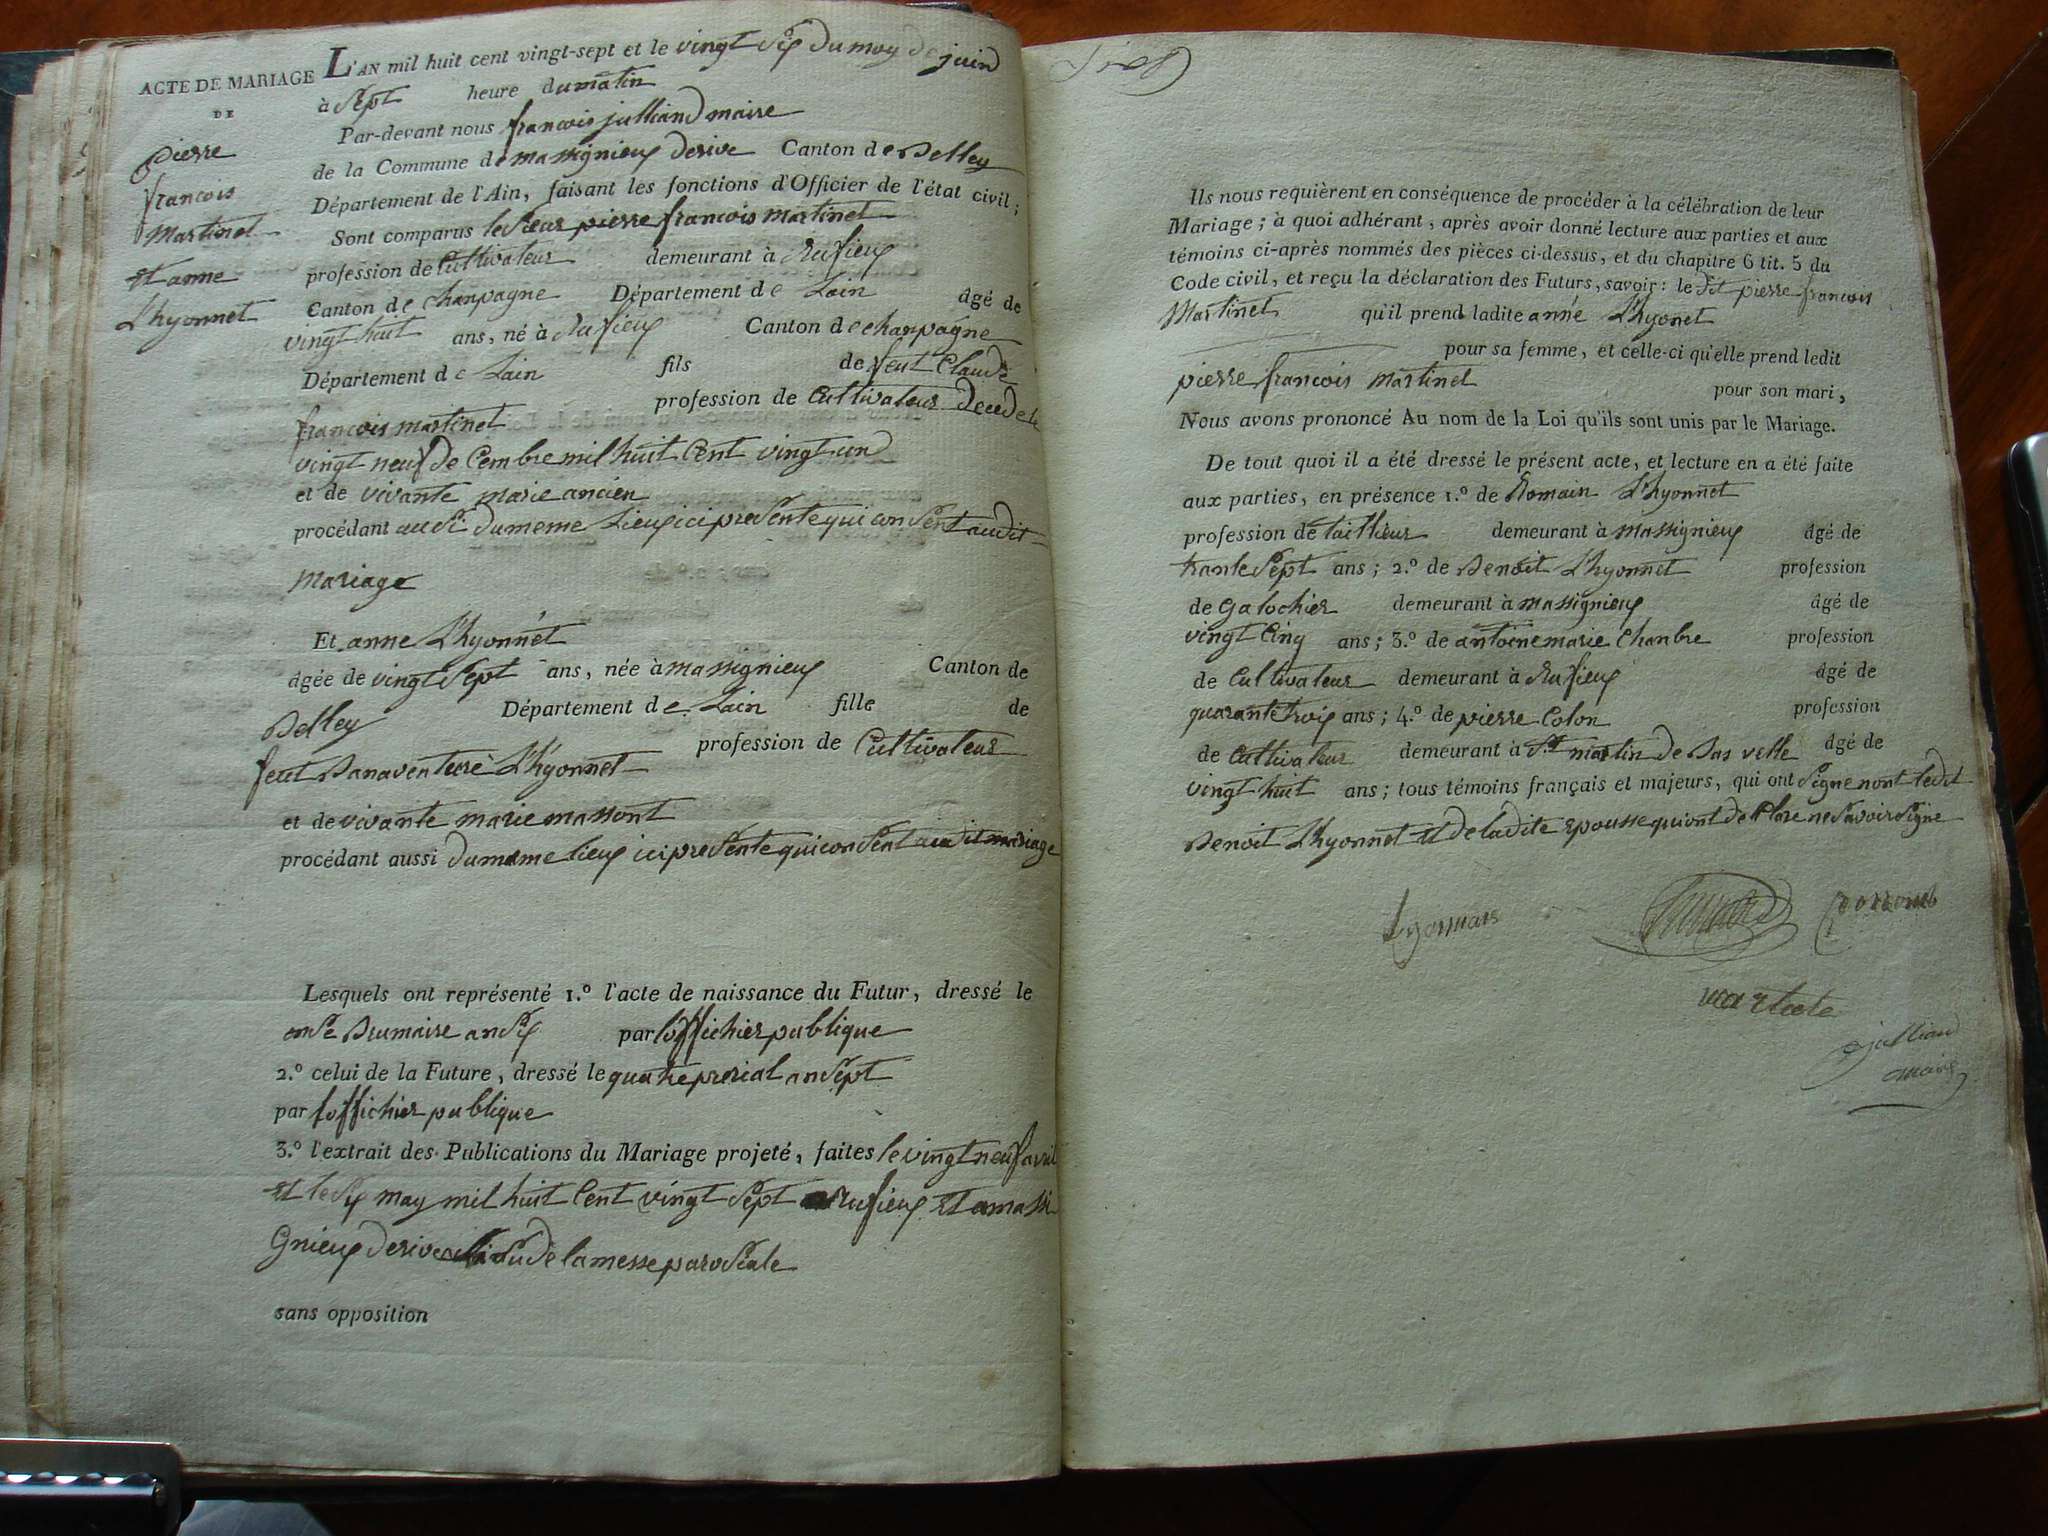 ACTE DE MARIAGE
DE
pierre
francois
Martinet
et anne
L'hyonnet
L'AN mil huit cent vingt-sept et le vingt six du moy de juin
à sept heure du matin
Par-devant nous francois julliand maire
de la Commune de massignieux derive Canton de Belley
Département de l'Ain, faisant les fonctions d'Officier de l'état civil;
Sont comparus le sieur pierre francois martinet
profession de Cultivateur demeurant à Rufieux
Canton de chanpagne Département de Lain âgé de
vingt huit ans, né à Rufieux Canton de chanpagne
Département de Lain fils de feut Claude
francois martinet profession de Cultivateur decede le
vingt neuf de Cembre mil huit Cent vingt un
et de vivante marie ancien
procédant aussi du meme Lieux ici presente qui consent audit
mariage
Et anne L'hyonnet
âgée de vingt sept ans, née à massignieux Canton de
Belley Département de Lain fille de
feut Banaventure L'hyonnet profession de Cultivateur
et de vivante marie massont
procédant aussi du meme lieux ici presente qui consent audit mariage
Lesquels ont représenté 1.º l'acte de naissance du Futur, dressé le
onse Brumaire an six par l'offichier publique
2.º celui de la Future, dressé le quatre prerial an sept
par l'offichier publique
3.º l'extrait des Publications du Mariage projeté, faites le vingt neuf avril
et le six may mil huit Cent vingt sept a Rufieux et a massi
Gnieux derive de la messe parosiale
sans opposition
Ils nous requièrent en conséquence de procéder à la célébration de leur
Mariage; à quoi adhérant, après avoir donné lecture aux parties et aux
témoins ci-après nommés des pièces ci-dessus, et du chapitre 6 tit. 5 du
Code civil, et reçu la déclaration des Futurs, savoir: le dit pierre francois
Martinet qu'il prend ladite anne L'hyonet
pour sa femme, et celle-ci qu'elle prend ledit
pierre francois martinet pour son mari,
Nous avons prononcé Au nom de la Loi qu'ils sont unis par le Mariage.
De tout quoi il a été dressé le présent acte, et lecture en a été faite
aux parties, en présence 1.º de Romain L'hyonnet
profession de taillieur demeurant à massignieux âgé de
trante sept ans; 2.º de Benoit L'hyonnet profession
de Galochier demeurant à massignieux âgé de
vingt Cinq ans; 3.º de antoine marie Chanbre profession
de Cultivateur demeurant à Rufieux âgé de
quarante trois ans; 4.º de pierre Colon profession
de Cultivateur demeurant à St martin de Bas velle âgé de
vingt huit ans; tous témoins français et majeurs, qui ont signe nont ledit
Benoit L'hyonnet et de ladite epousse qui ont de Clare ne savoir signe
julliand
maire